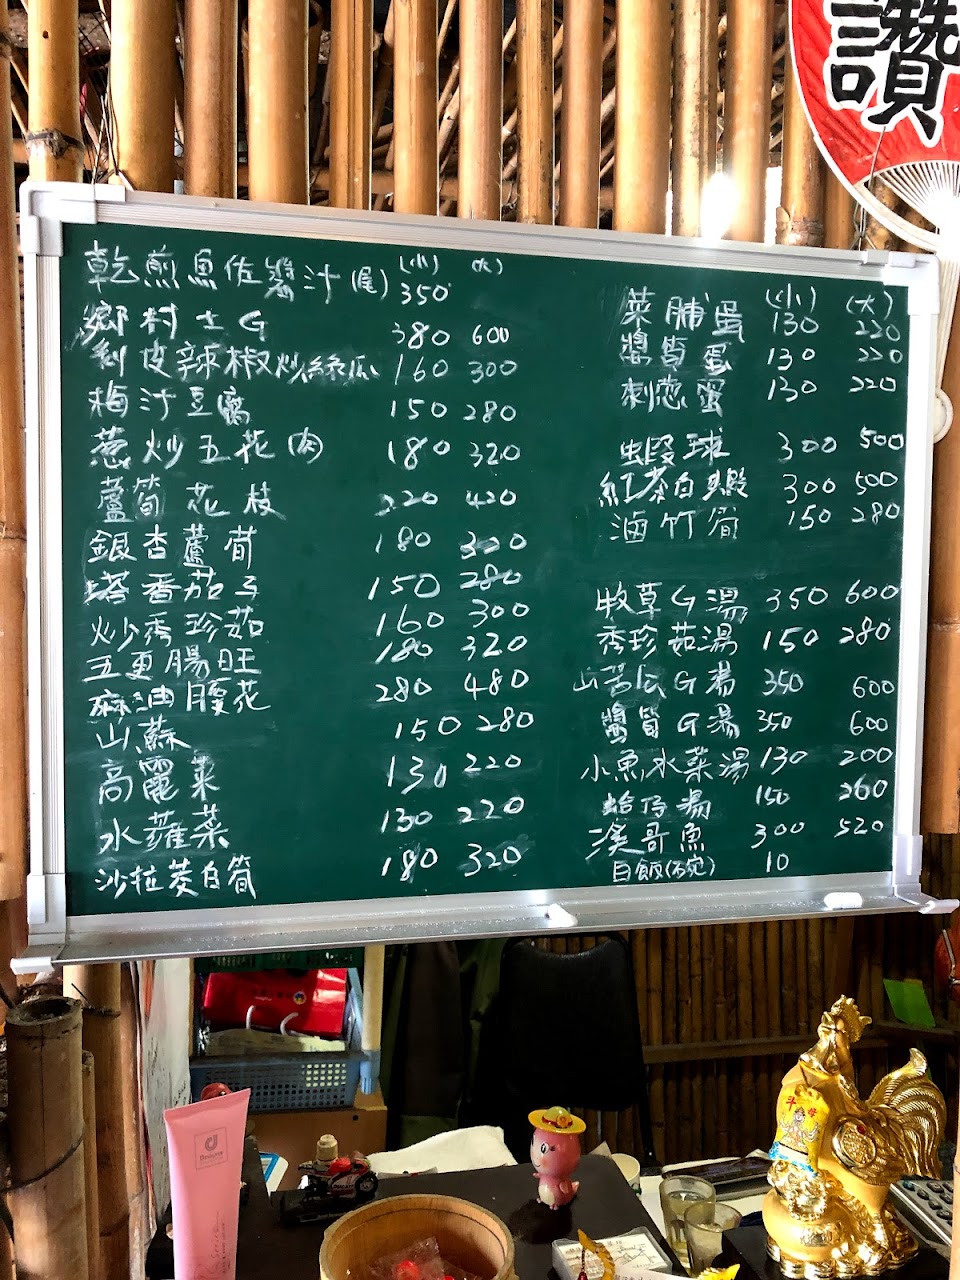 讚
(小) (大)
乾煎魚佐醬汁(尾) 350
鄉村土G 380 600
剝皮辣椒炒絲瓜 160 300
梅汁豆腐 150 280
蔥炒五花肉 180 320
蘆筍花枝 220 420
銀杏蘆筍 180 320
塔香茄子 150 280
炒秀珍菇 160 300
五更腸旺 180 320
麻油腰花 280 480
山蘇 150 280
高麗菜 130 220
水蓮菜 130 220
沙拉茭白筍 180 320
(小) (大)
菜脯蛋 130 220
醬筍蛋 130 220
刺蔥蛋 130 220
蝦球 300 500
紅茶白蝦 300 500
滷竹筍 150 280
牧草G湯 350 600
秀珍菇湯 150 280
山苦瓜G湯 350 600
醬筍G湯 350 600
小魚水菜湯 130 200
蛤仔湯 150 260
溪哥魚 300 520
白飯(碗) 10